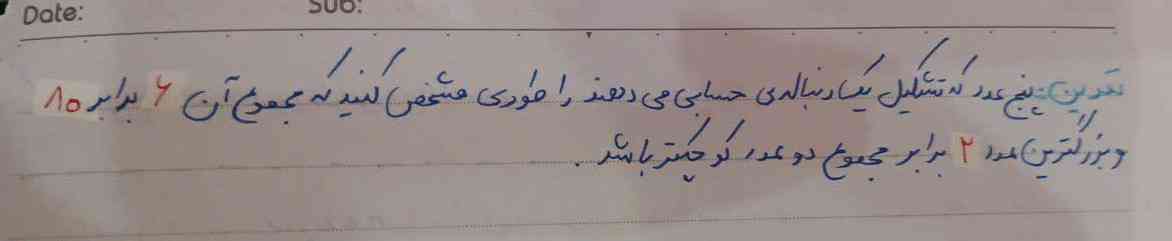 Date:
SUB:
تمرین: پنج عدد که تشکیل یک دنباله‌ی حسابی می دهند را طوری مشخص کنید که مجموع آن ۶ برابر ۸۰
و بزرگترین عدد ۲ برابر مجموع دو عدد کوچکتر باشد.